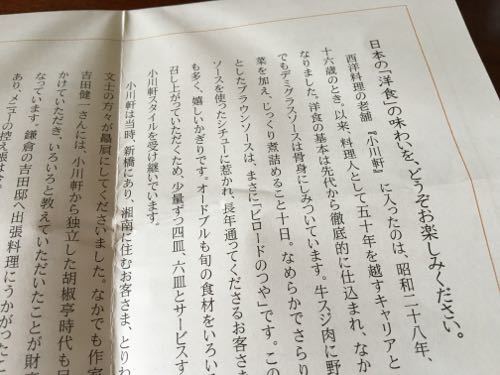 日本の「洋食」の味わいを、どうぞお楽しみください。
西洋料理の老舗『小川軒』に入ったのは、昭和二十八年、
十六歳のとき。以来、料理人として五十年を越すキャリアと
なりました。洋食の基本は先代から徹底的に仕込まれ、なか
でもデミグラスソースは骨身にしみついています。牛スジ肉に野
菜を加え、じっくり煮詰めること十日。なめらかでさらり
としたブラウンソースは、まさに「ビロードのつや」です。この
ソースを使ったシチューに惹かれ、長年通ってくださるお客さま
も多く、嬉しいかぎりです。オードブルも旬の食材をいろいろ
召し上がっていただくため、少量ずつ四皿、六皿とサービスす
小川軒スタイルを受け継いでいます。
小川軒は当時、新橋にあり、湘南に住むお客さま、とりわ
文士の方々が贔屓にしてくださいました。なかでも作家
吉田健一さんには、小川軒から独立した胡椒亭時代も目
かけていただき、いろいろと教えていただいたことが財
なっています。鎌倉の吉田邸へ出張料理にうかがったこ
あり、メニューの控え帳は